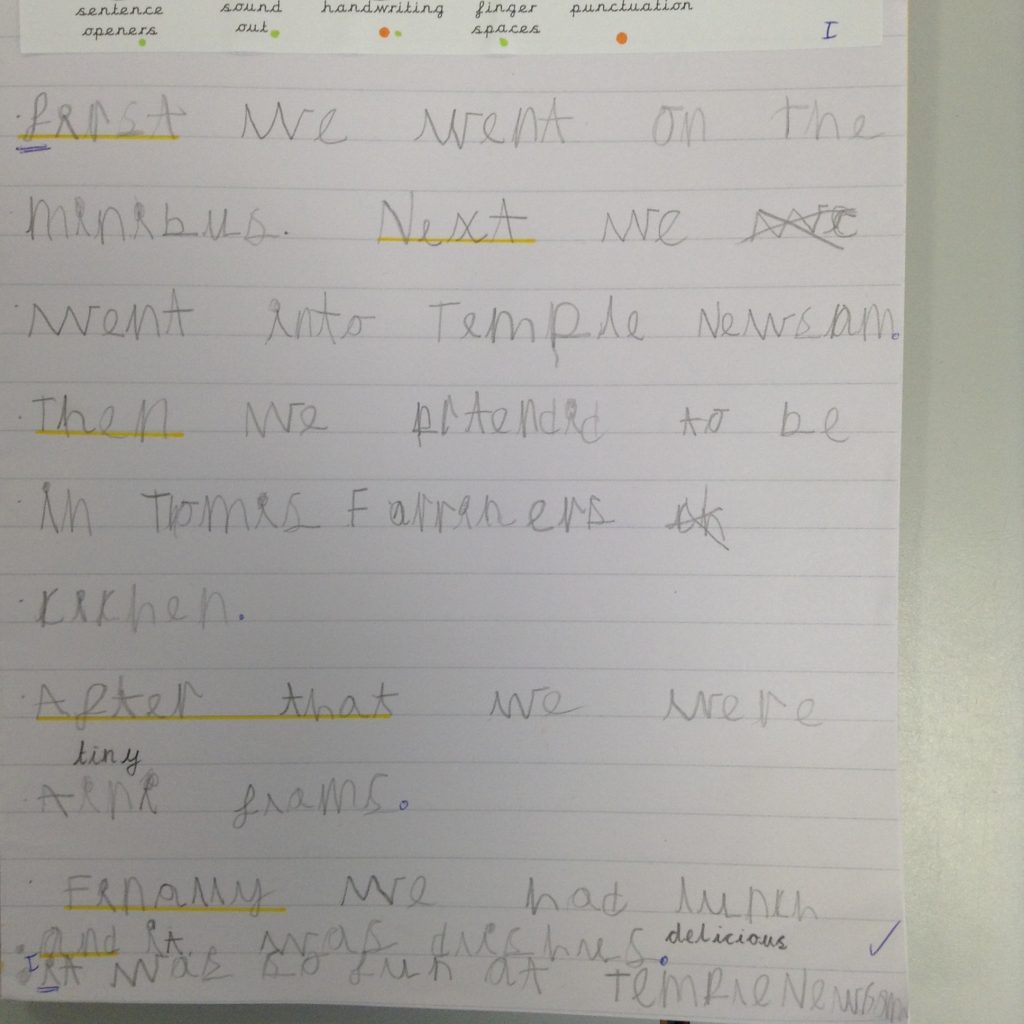 sentence openers sound out handwriting finger spaces punctuation
I
first we went on the
minibus. Next we we
went into Temple Newsam.
Then we ptended to be
in Tomes Farriners
kichen.
After that we were
tiny
tine frams.
Finally we had lunch
and it was dieshues. delicious
I
it was so fun at Temple Newsam